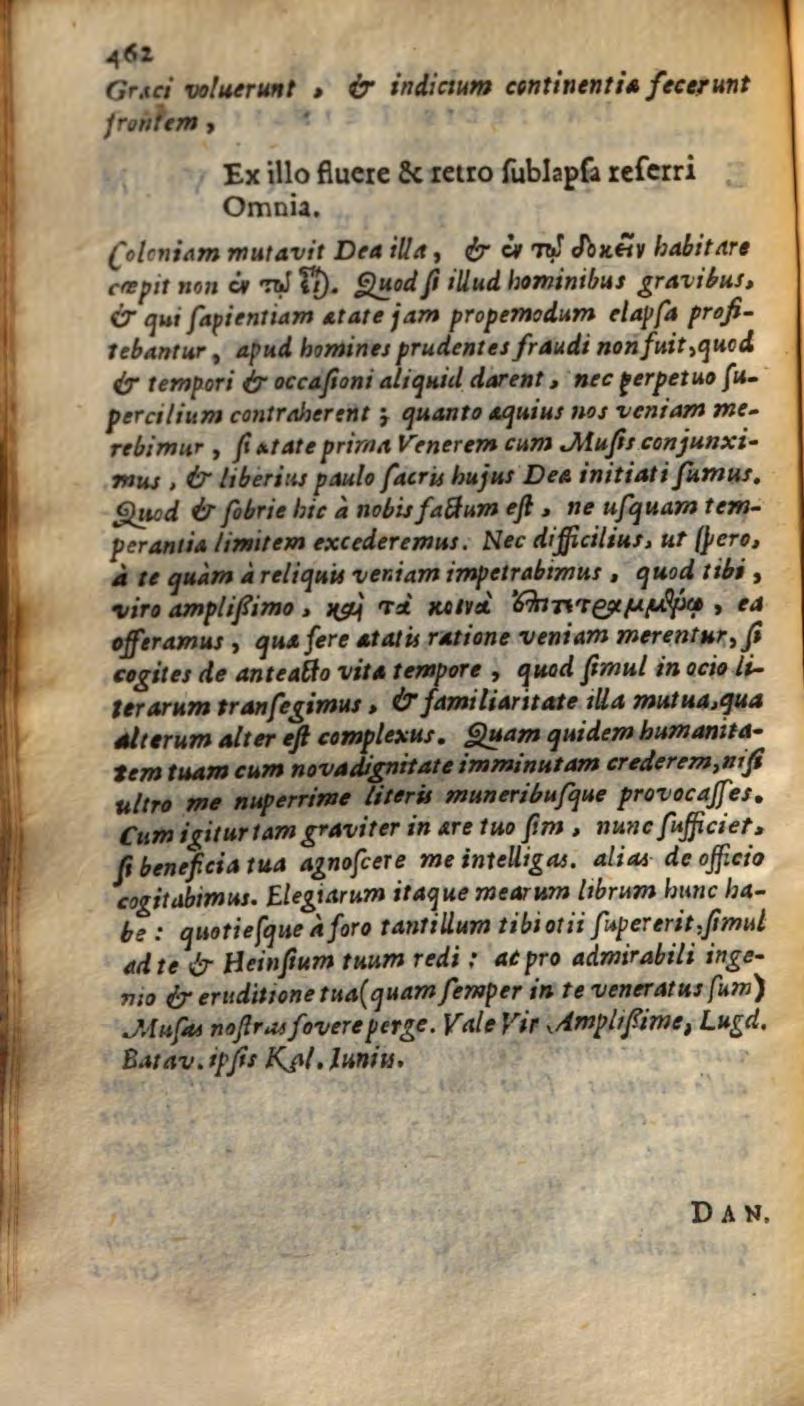 462
Græci voluerunt, & indicium continentiæ fecerunt
frontem,
Ex illo fluere & retro ſublapſa referri
Omnia.
Coloniam mutavit Dea illa, & ἐν τῷ δοκεῖν habitare
cœpit non ἐν τῷ εἶναι. Quod ſi illud hominibus gravibus,
& qui ſapientiam ætate jam propemodum elapſa profi-
tebantur, apud homines prudentes fraudi non fuit, quod
& tempori & occaſioni aliquid darent, nec perpetuo ſu-
percilium contraherent; quanto æquius nos veniam me-
rebimur, ſi ætate prima Venerem cum Muſis conjunxi-
mus, & liberius paulo ſacris hujus Deæ initiati ſumus.
Quod & ſobrie hic à nobis factum eſt, ne uſquam tem-
perantiæ limitem excederemus. Nec difficilius, ut ſpero,
à te quàm à reliquis veniam impetrabimus, quod tibi,
viro ampliſſimo, καὶ τὰ κοινὰ ἐπιτετραμμένῳ, ea
offeramus, quæ fere ætatis ratione veniam merentur, ſi
cogites de anteacto vitæ tempore, quod ſimul in ocio li-
terarum tranſegimus, & familiaritate illa mutua, qua
alterum alter eſt complexus. Quam quidem humanita-
tem tuam cum nova dignitate imminutam crederem, niſi
ultro me nuperrime literis muneribuſque provocaſſes.
Cum igitur tam graviter in ære tuo ſim, nunc ſufficiet,
ſi beneficia tua agnoſcere me intelligas. alias de officio
cogitabimus. Elegiarum itaque mearum librum hunc ha-
be: quotieſque à foro tantillum tibi otii ſupererit, ſimul
ad te & Heinſium tuum redi: ac pro admirabili inge-
nio & eruditione tua (quam ſemper in te veneratus ſum)
Muſas noſtras fovere perge. Vale Vir Ampliſſime, Lugd.
Batav. ipſis Kal. Iuniis.
DAN.